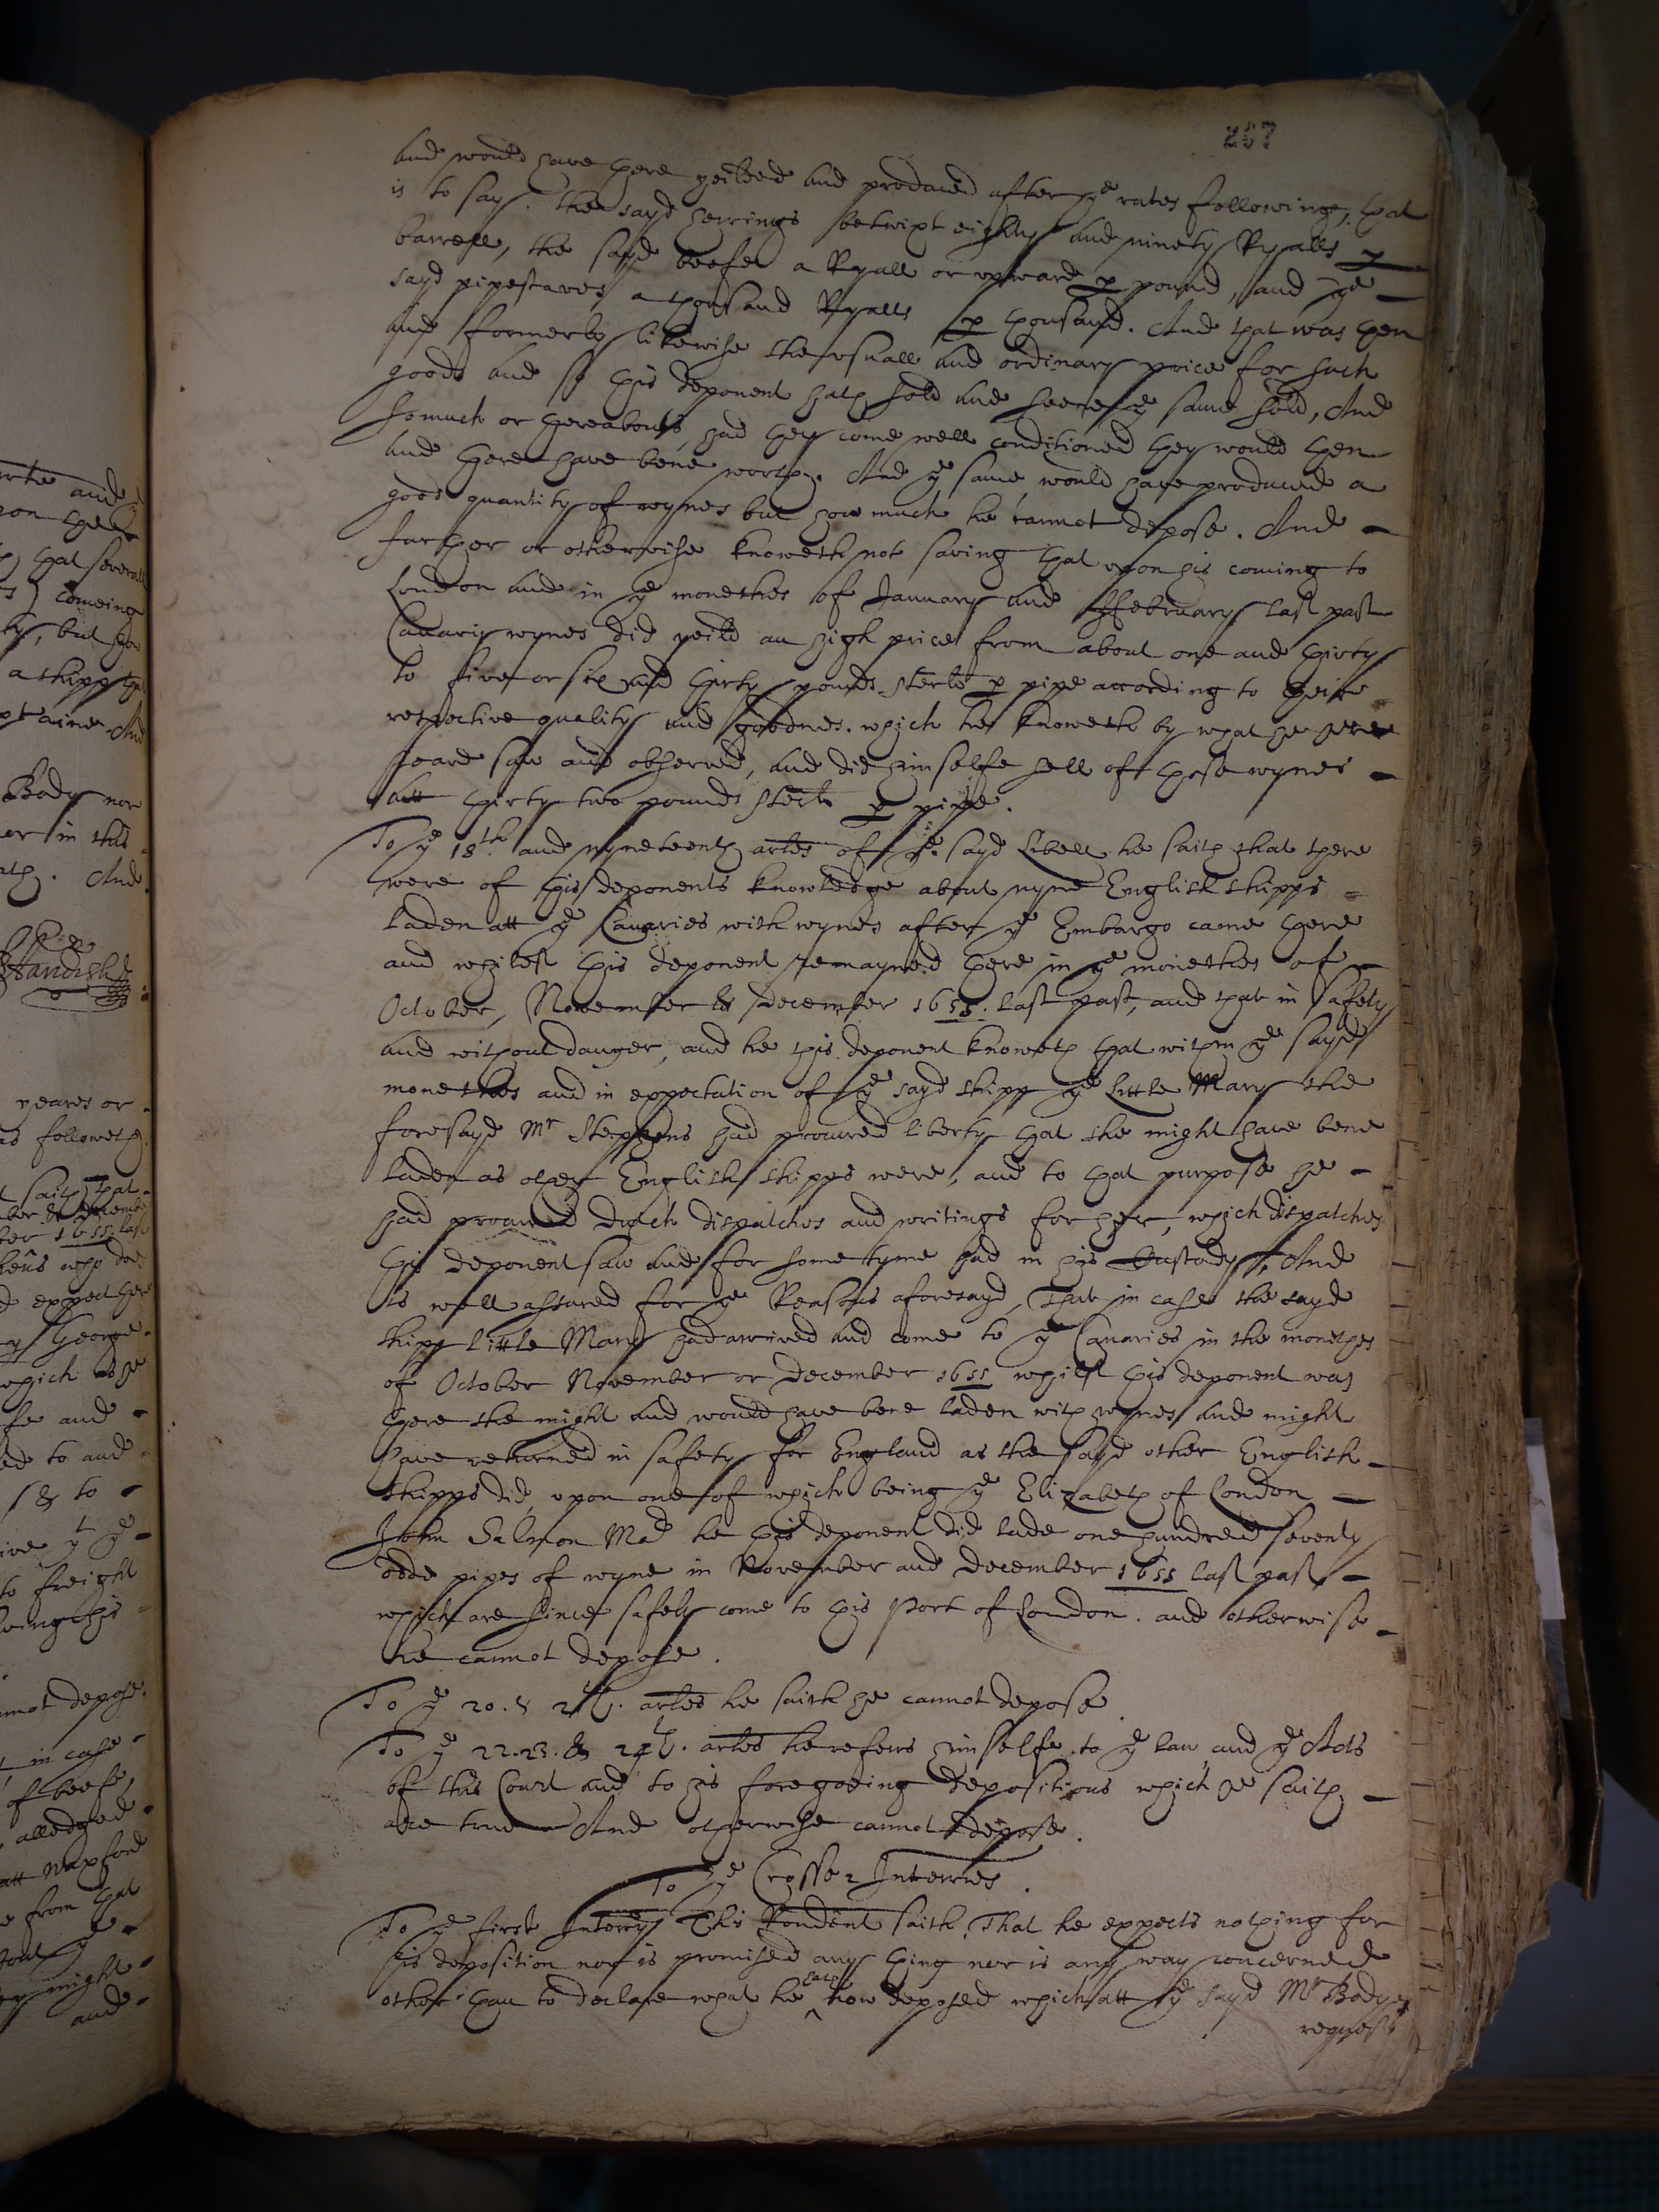 rte and
pon the
that severall
comeing
by, but how
a shipp
And
Body nor
er in this
ath. And
yeares or
as followeth
saith that
ber & decemb
ber 1655 last
hens who did
expect her
George
which as he
and
ed to and
& to
ive yt ye
to freight
this
nnot depose.
in case
of beefe,
alledged
att
from that
ye
might
and
257
and would have there yeilded and produced after ye rates following, that
is to say. the sayd herrings betwixt eighty and ninety Ryalls p
barrell, the sayd beefe a Ryall or upward p pound, and ye
sayd pipestaves a thousand Ryalls p thousand. And that was then
and formerly likewise the usuall and ordinary price for such
goods and so this deponent hath sold and seene ye same sold, And
so much or thereabouts had they come well conditioned they would then
and there have bene worth. And ye same would have produced a
good quantity of wynes but how much he cannot depose. And
further or otherwise knoweth not saving that upon his coming to
London and in ye monethes of January and ffebruary last past
Canary wynes did yeild an high price from about one and thirty
to five or six and thirty pounds sterls p pipe according to their
respective quality and goodnes. which hee knoweth by what he here
heard saw and observed, and did himselfe sell of those wynes
att thirty two pounds sterls p pipe.
To ye 18th and nyneteenth artles of ye sayd Libell he saith that there
were of this deponents knowledge about nyne English shipps
laden att ye Canaries with wynes after ye Embargo came there
and whilest this deponent remayned there in ye monethes of
October, November & december 1655. last past, and that in safety
and without danger, and he this deponent knoweth that within ye sayd
monethes and in expectation of ye sayd shipp ye Little Mary the
foresayd Mr Stephens had procured liberty that she might have bene
laden as other English shipps were, and to that purpose he
had procured dutch dispatches and writings for her, which dispatches
this deponent saw and for some tyme had in his Custody, And
is well assured for ye Reasons aforesayd, That in case the sayd
shipp Little Mary had arrived and come to ye Canaries in the monethes
of October November or december 1655 whilst this deponent was
there she might and would have bene laden with wynes and might
have returned in safety for England as the sayd other English
shipps did, upon one of which being ye Elizabeth of London
John Salmon Mar he this deponent did lade one hundred seventy
odde pipes of wyne in November and december 1655 last past
which are since safely come to this Port of London. and otherwise
he cannot depose.
To ye 20. & 21th. artles he saith he cannot depose.
To ye 22. 23. & 24th. artles he refers himselfe to ye law and ye Acts
of this Court and to his foregoeing depositions which he saith
are true And otherwise cannot depose.
To ye Crosse Interries.
To ye first Interry This Rondent saith That he expects nothing for
his deposition nor is promised any thing nor is any way concerned
other than to declare what he ^hath now deposed which att ye sayd Mr Bodys
request